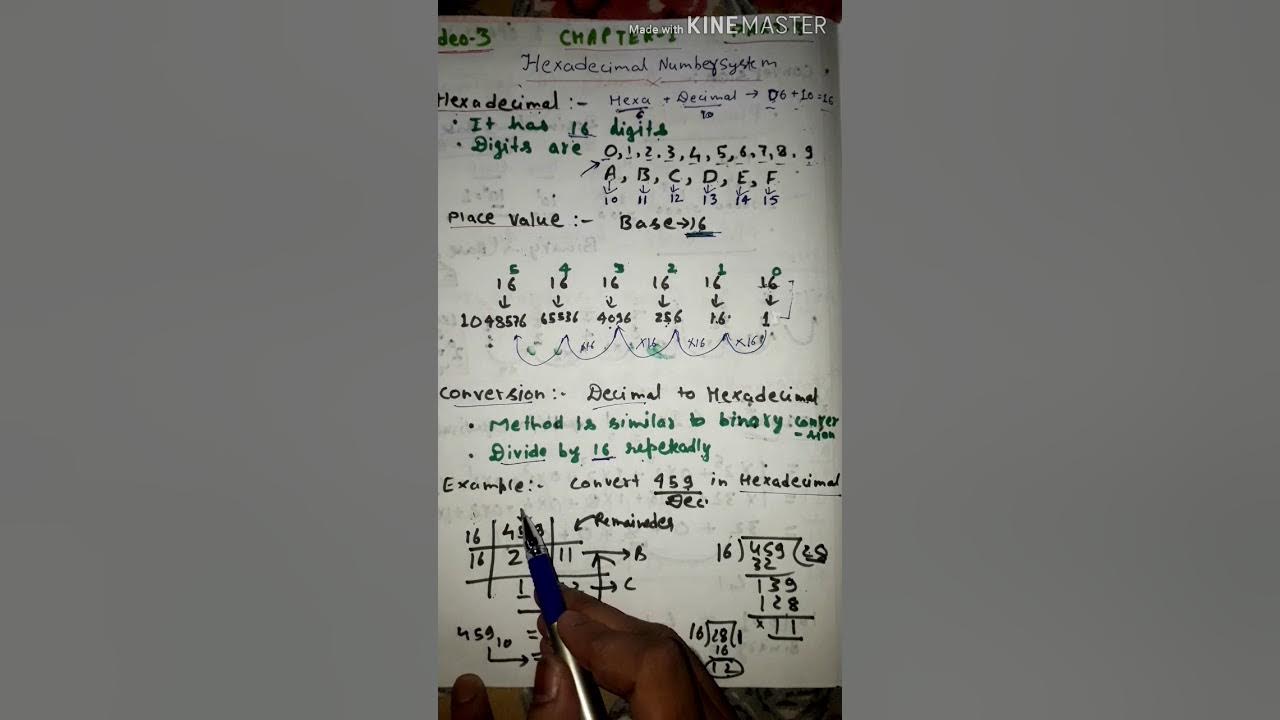 Made with KINEMASTER
deo-3 CHAPTER-
Hexadecimal Number system
Hexadecimal :- Hexa + Decimal → 6 + 10 = 16
6 10
• It has 16 digits
• Digits are 0, 1, 2, 3, 4, 5, 6, 7, 8, 9
A, B, C, D, E, F
10 11 12 13 14 15
Place value :- Base → 16
16⁵ 16⁴ 16³ 16² 16¹ 16⁰
↓ ↓ ↓ ↓ ↓ ↓
1048576 65536 4096 256 16 1
×16 ×16 ×16 ×16
Conversion :- Decimal to Hexadecimal
• Method is similar to binary conver
-sion
• Divide by 16 repekadly
Example :- Convert 459 in Hexadecimal
Dec.
16 | 459 | Remainades
16 | 2 | 11 → B
1 → C
459₁₀ =
=
16 ) 459 (
32
139
128
× 11
16 ) 28 ( 1
16
12